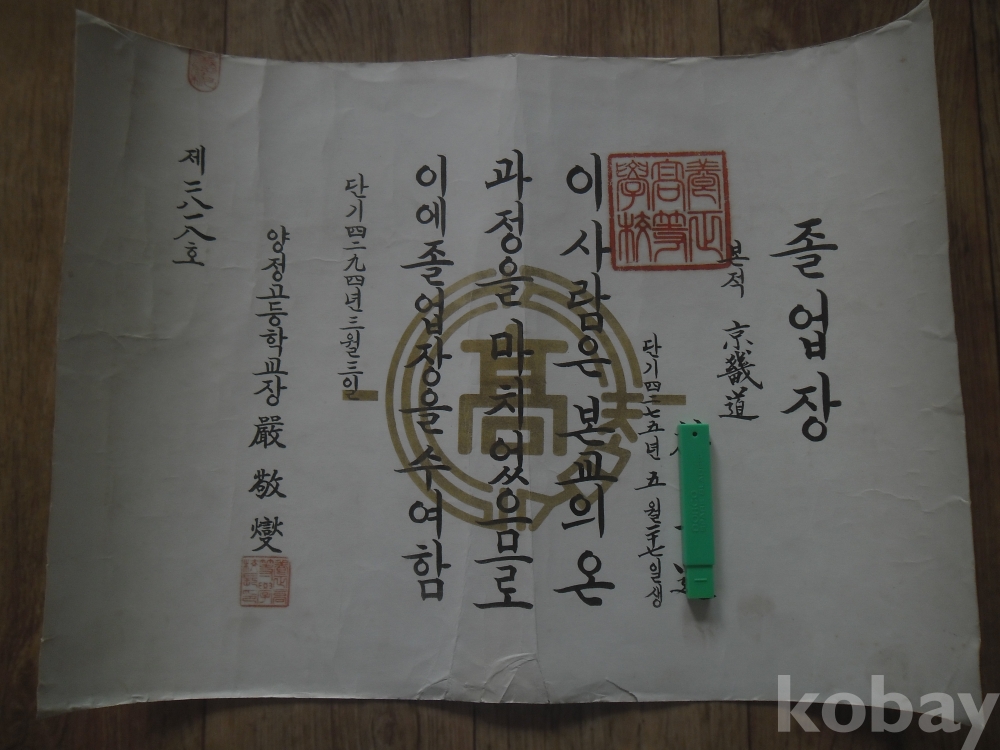 졸업장
본적 京畿道
단기四二七五년 五월二十七일생
이 사람은 본교의 온
과정을 마치었으므로
이에 졸업장을 수여함
단기四二九四년三월三일
양정고등학교장 嚴敬燮
제二八一八호
養正高等學校
高
kobay